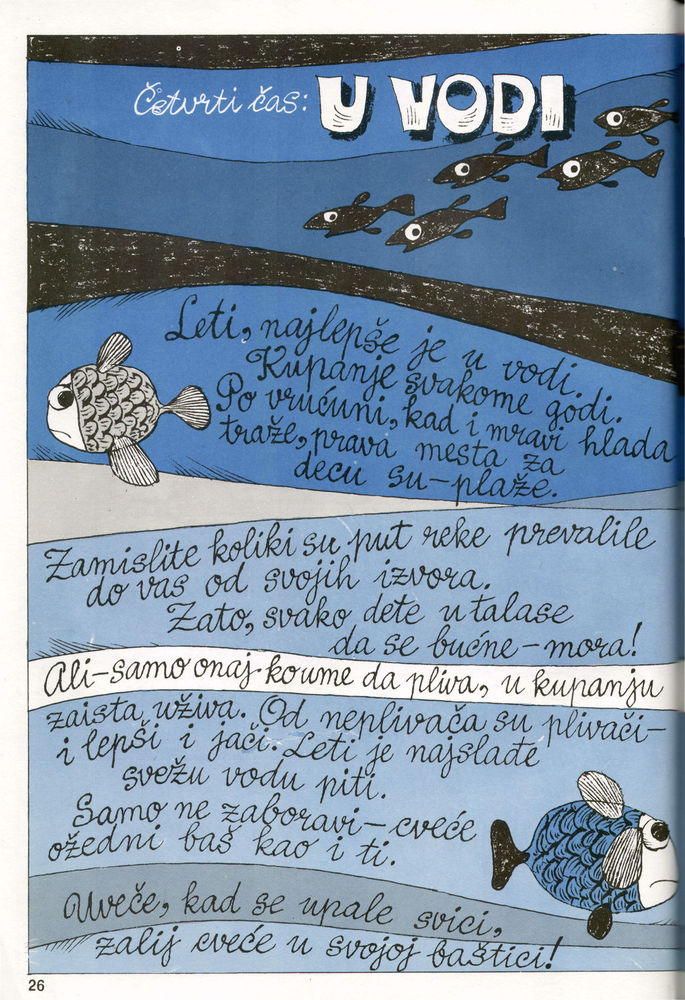 Četvrti čas: U VODI
Leti, najlepše je u vodi.
Kupanje svakome godi.
Po vrućini, kad i mravi hlada
traže, prava mesta za
decu su – plaže.
Zamislite koliki su put reke prevalile
do vas od svojih izvora.
Zato, svako dete u talase
da se bućne – mora!
Ali – samo onaj koume da pliva, u kupanju
zaista uživa. Od neplivača su plivači –
i lepši i jači. Leti je najslađe
svežu vodu piti.
Samo ne zaboravi – cveće
ožedni baš kao i ti.
Uveče, kad se upale svici,
zalij cveće u svojoj baštici!
26